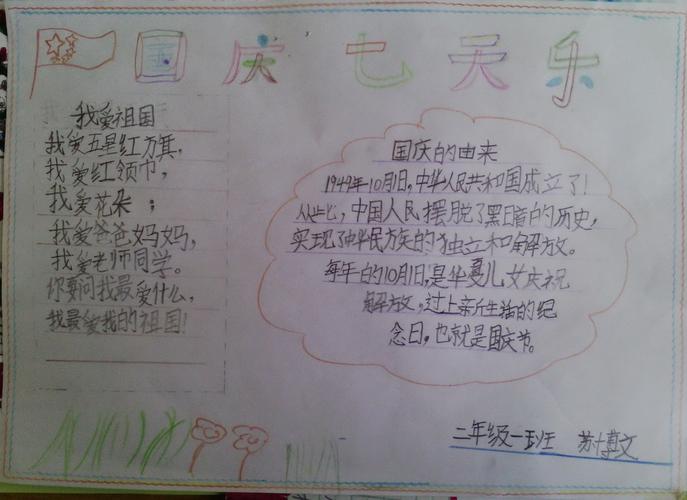 国庆七天乐
我爱祖国
我爱五星红方旗，
我爱红领巾，
我爱花朵；
我爱爸爸妈妈，
我爱老师同学。
你要问我最爱什么，
我最爱我的祖国！
国庆的由来
1949年10月1日，中华人民共和国成立了！
从此，中国人民摆脱了黑暗的历史，
实现了中华民族的独立和解放。
每年的10月1日，是华夏儿女庆祝
解放，过上新生活的纪
念日，也就是国庆节。
二年级一班 苏博文